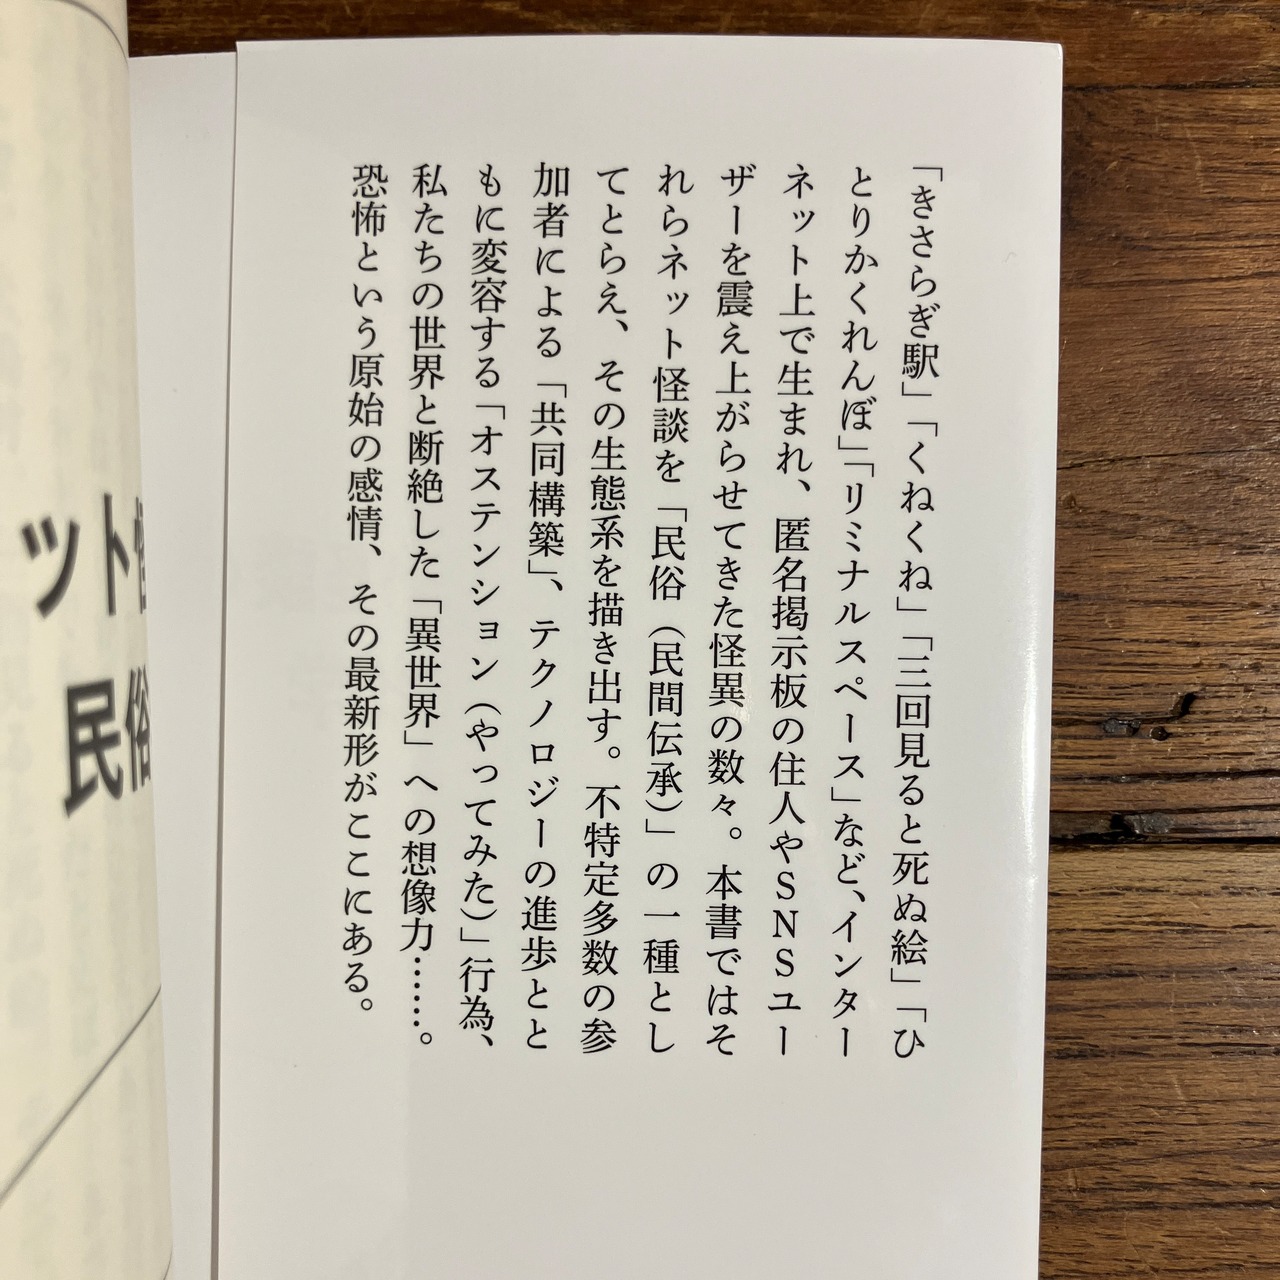 「きさらぎ駅」「くねくね」「三回見ると死ぬ絵」「ひ
とりかくれんぼ」「リミナルスペース」など、インター
ネット上で生まれ、匿名掲示板の住人やSNSユー
ザーを震え上がらせてきた怪異の数々。本書ではそ
れらネット怪談を「民俗（民間伝承）」の一種とし
てとらえ、その生態系を描き出す。不特定多数の参
加者による「共同構築」、テクノロジーの進歩とと
もに変容する「オステンション（やってみた）」行為、
私たちの世界と断絶した「異世界」への想像力……。
恐怖という原始の感情、その最新形がここにある。
ット怪
民俗